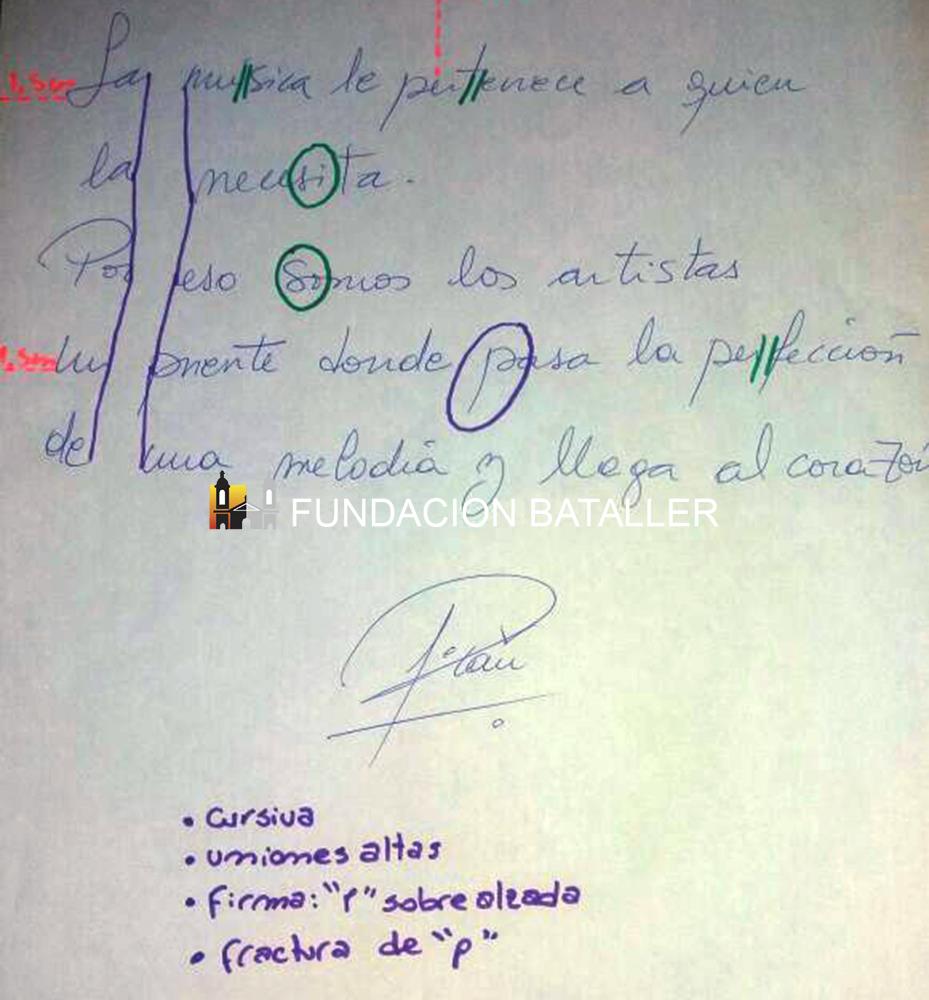 1,5cm La musica le pertenece a quien
la necesita.
Por eso somos los artistas
un puente donde pasa la perfección
de una melodía y llega al corazón
FUNDACION BATALLER
• cursiva
• uniones altas
• firma: "P" sobre alzada
• fractura de "p"